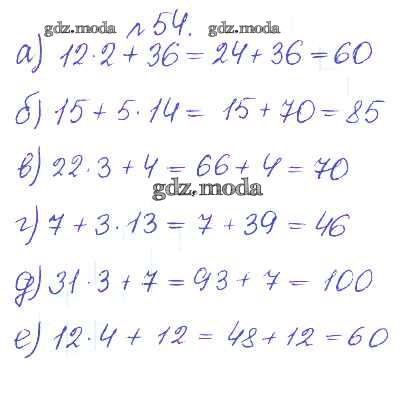 gdz.moda № 54. gdz.moda
а) 12·2 + 36 = 24 + 36 = 60
б) 15 + 5·14 = 15 + 70 = 85
в) 22·3 + 4 = 66 + 4 = 70
gdz.moda
г) 7 + 3·13 = 7 + 39 = 46
д) 31·3 + 7 = 93 + 7 = 100
е) 12·4 + 12 = 48 + 12 = 60